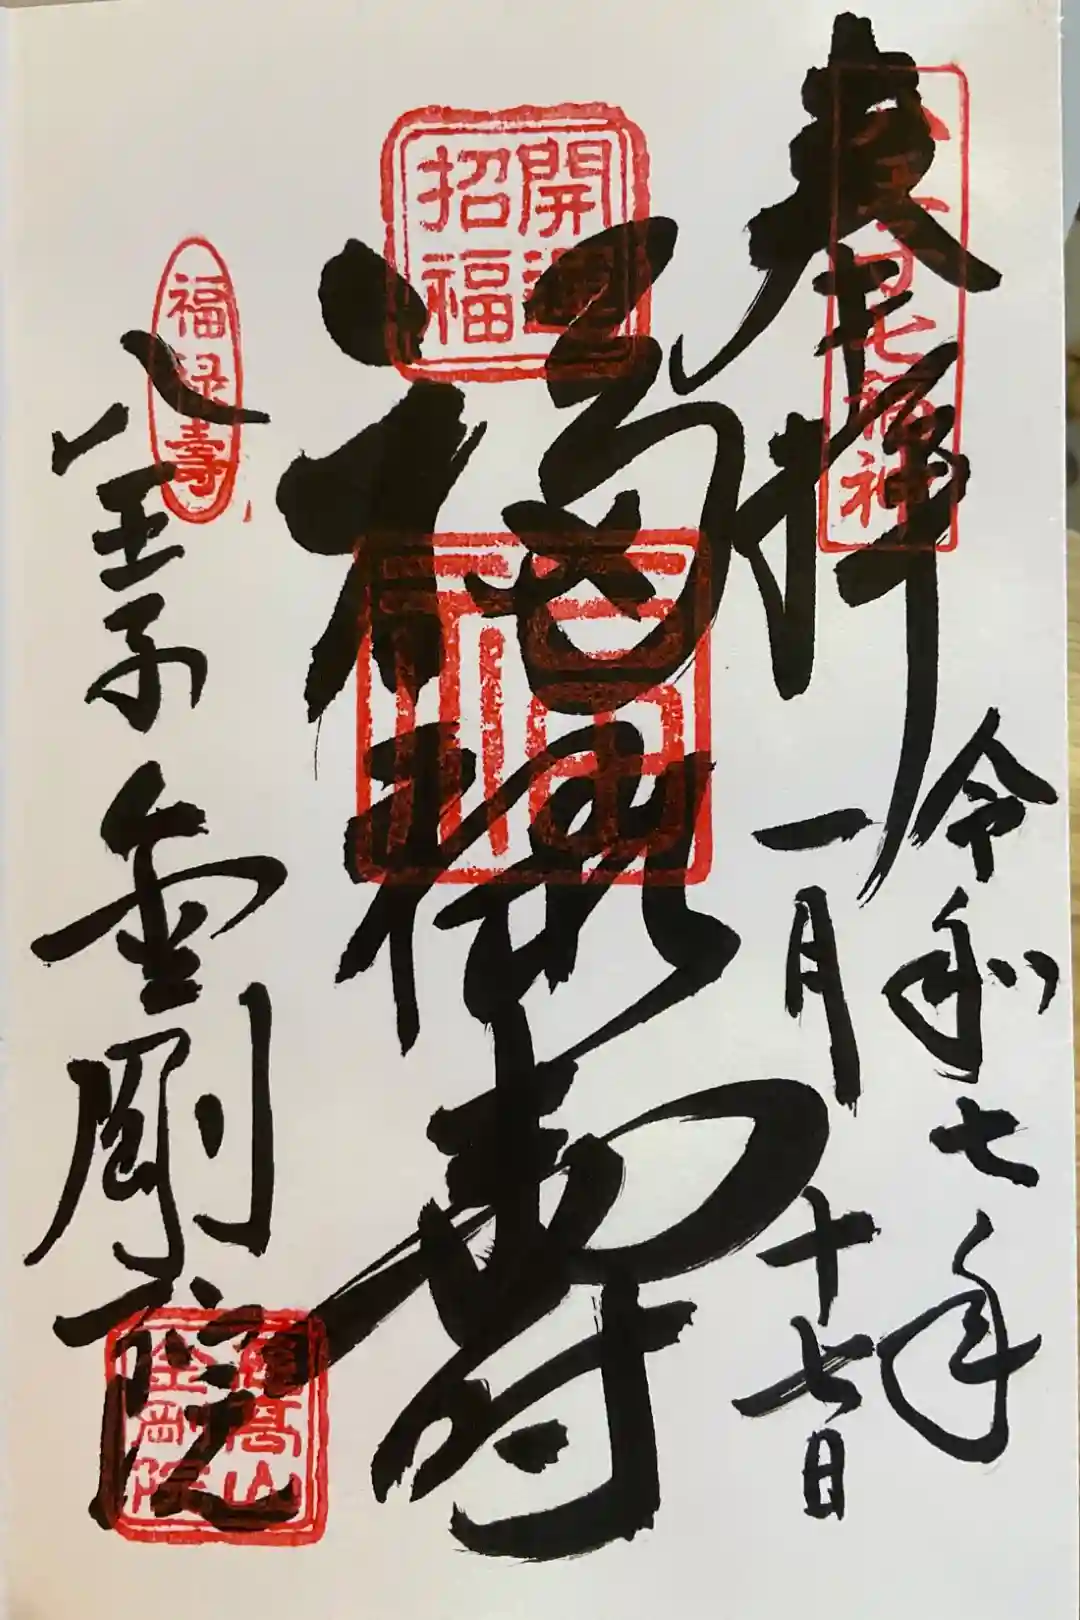 奉拝
令和七年
一月十七日
七福神
開運
招福
福禄寿
福禄壽
八王子
金剛院
高山
金剛院